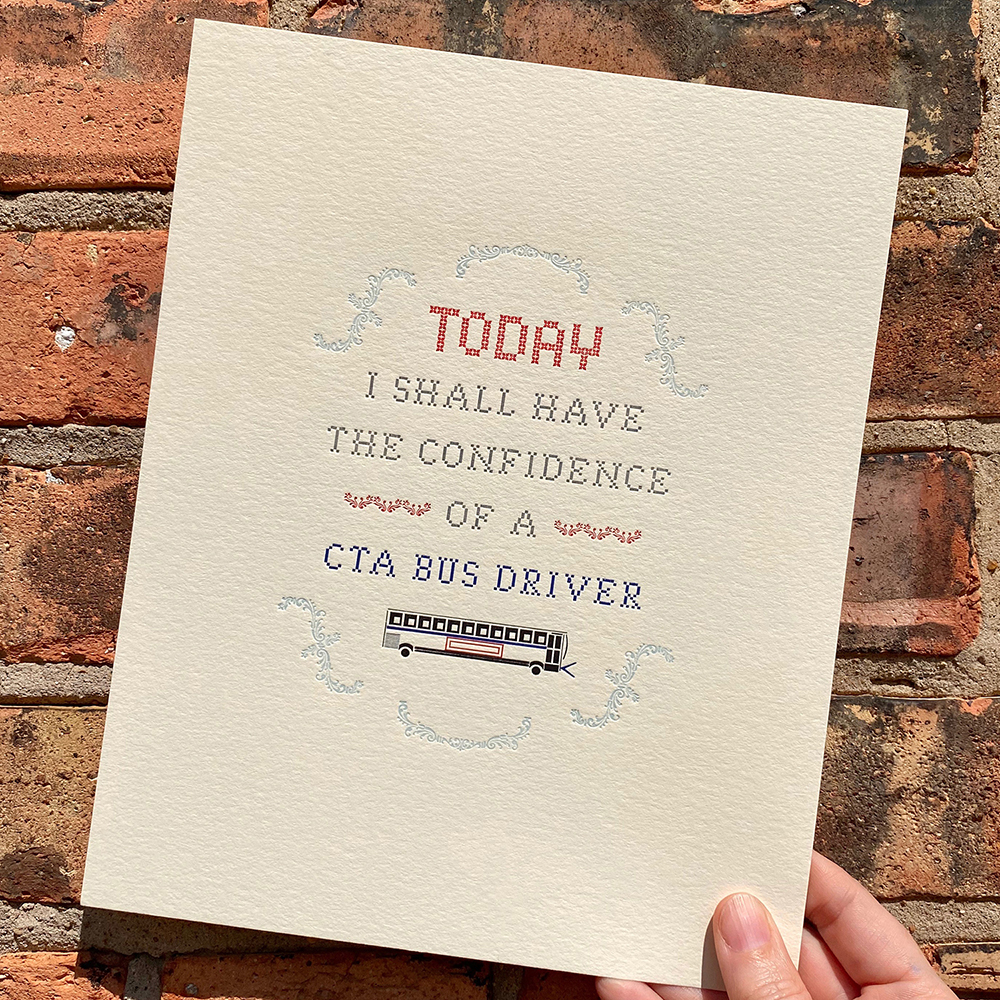 TODAY
I SHALL HAVE
THE CONFIDENCE
OF A
CTA BUS DRIVER